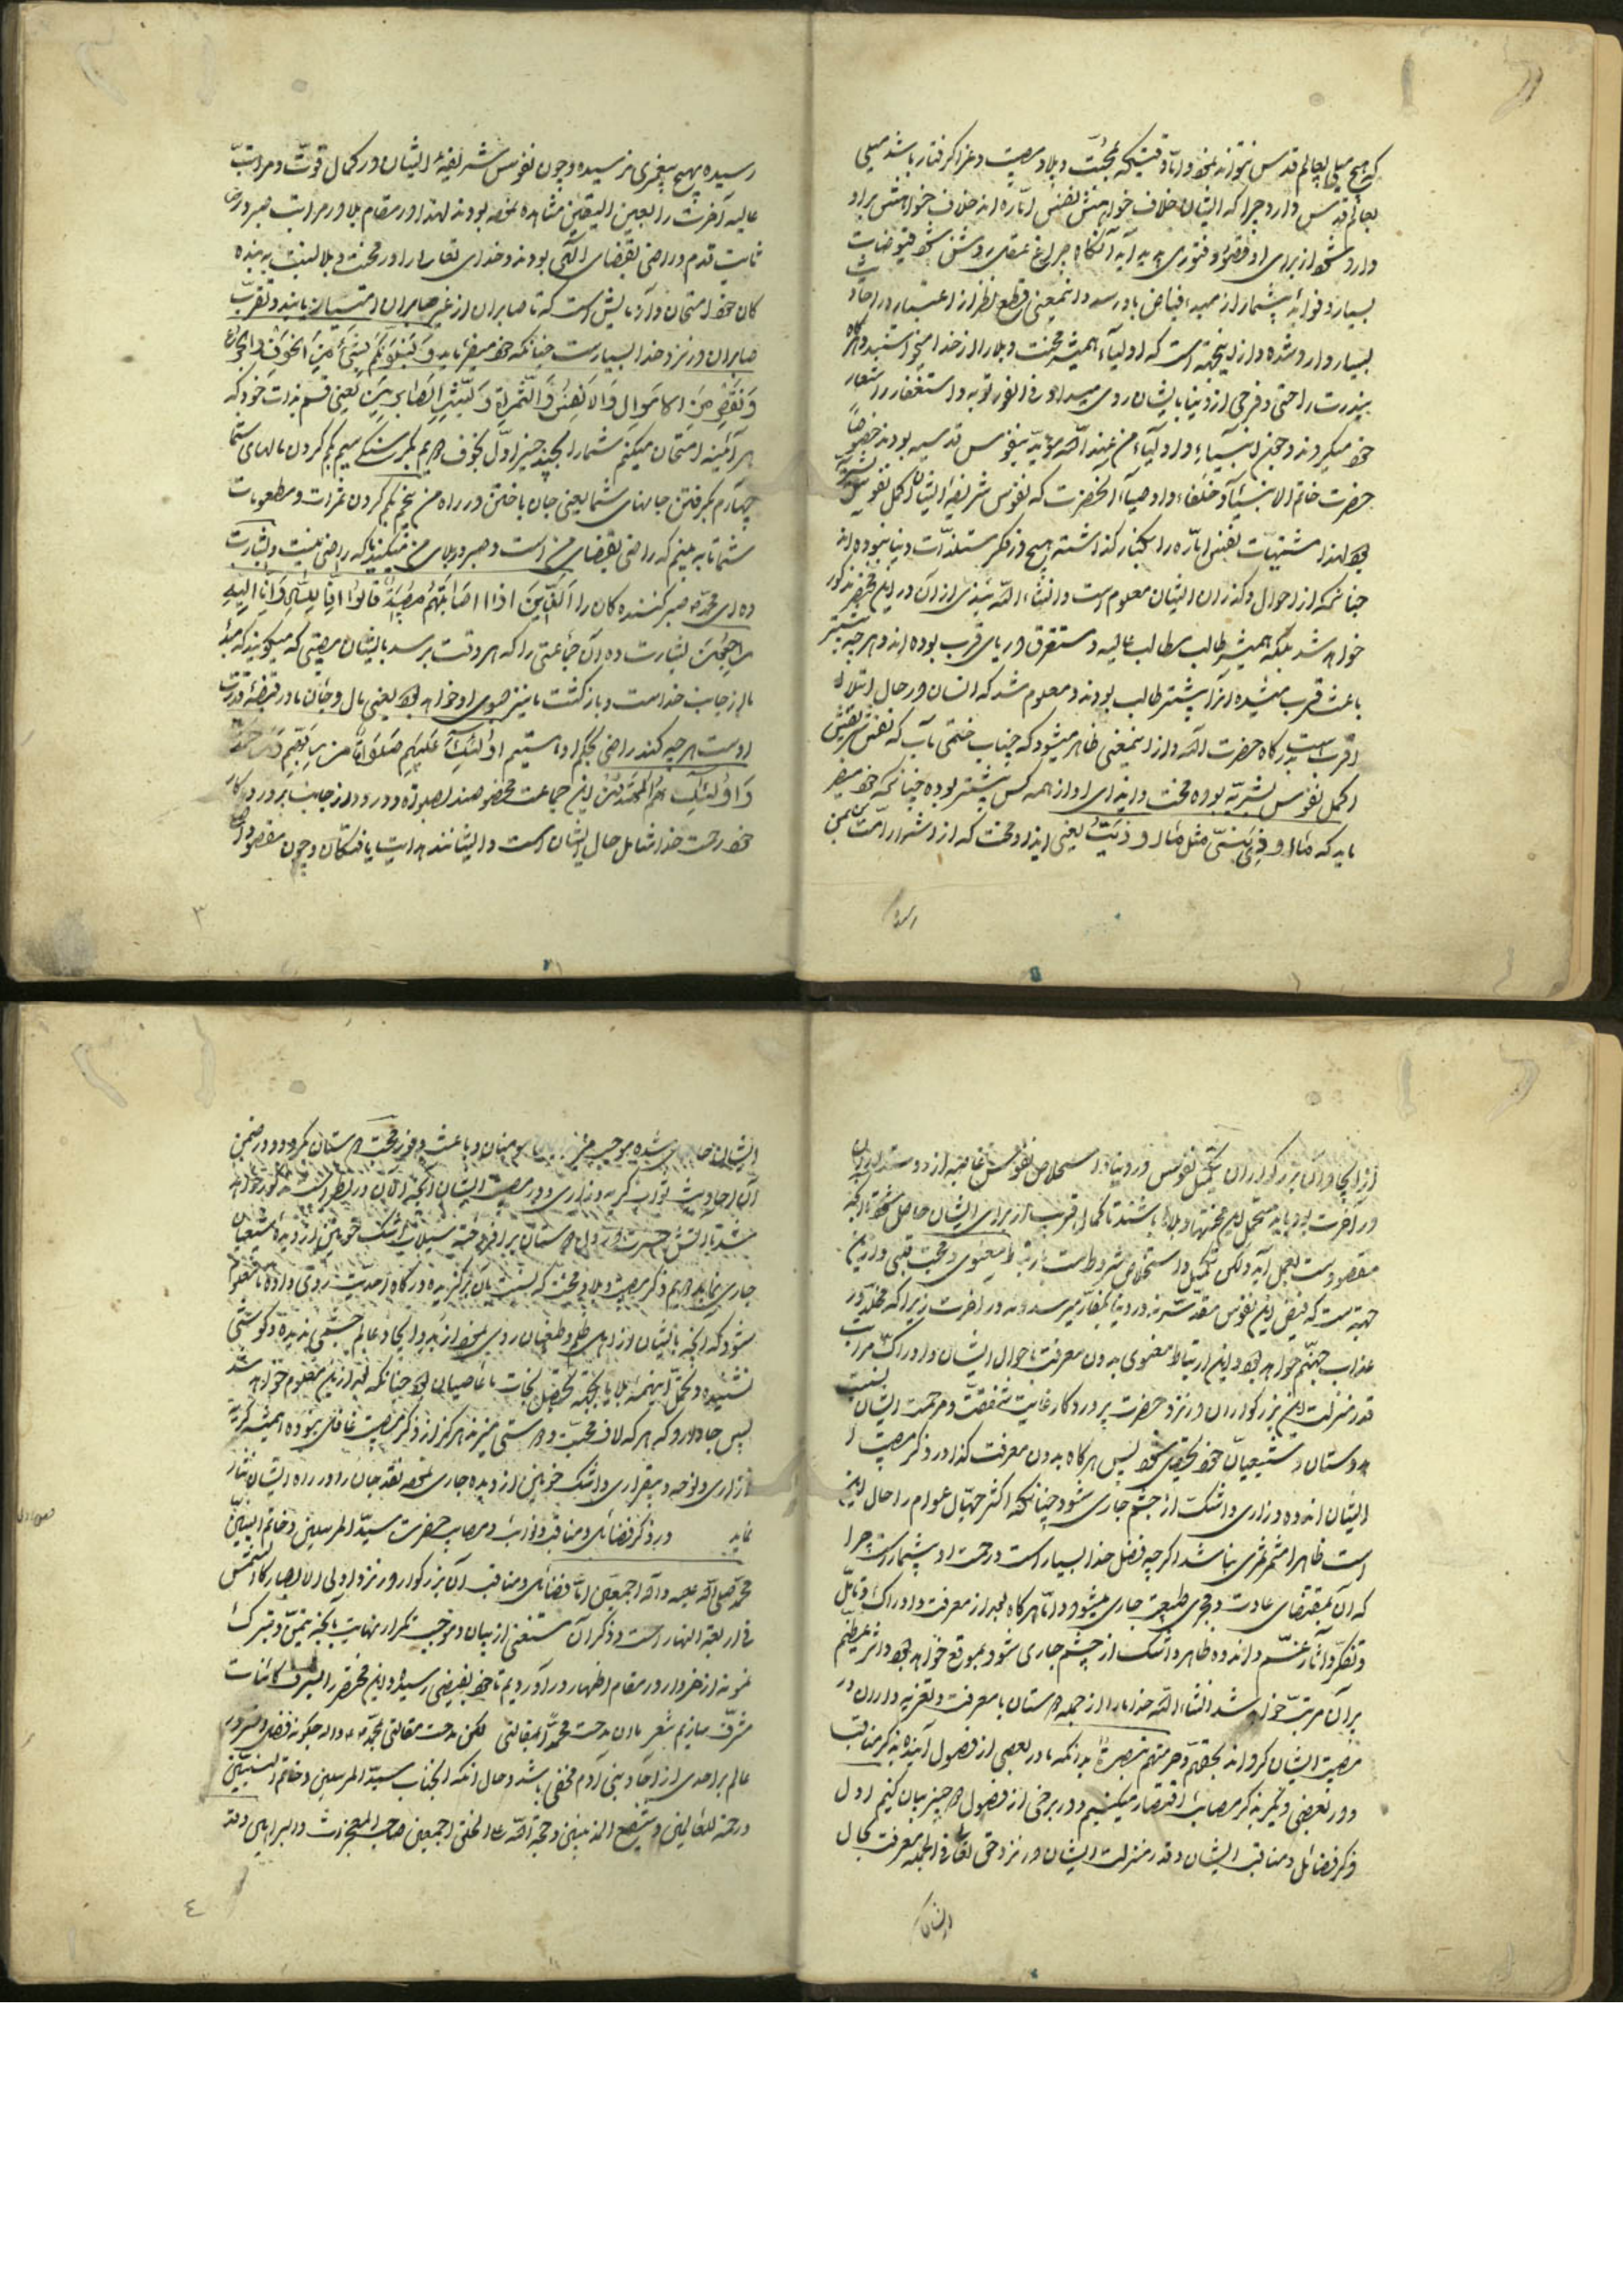 که هیچ میلی بعالم قدس نتواند نمود و اما وقتیکه بمحنت و بلا و مصیبت و عزا گرفتار باشد میلی
بعالم قدس دارد چرا که ایشان خلاف خواهش نفس اماره اند خلاف خواهش بر او
وارد شود از برای او قصور و فتوری پدید آید آنگاه چراغ عقل روشن شود فیوضات
بسیار و فواید بیشمار از مبدء فیاض باو رسد و اینمعنی قطع نظر از اعتبار در احادیث
بسیار وارد شده و از اینجهة است که اولیاء همیشه محنت و بلا را از خدا میخواستند و اگر
بندرت راحتی و فرحی از دنیا بایشان روی میداد فی الفور توبه و استغفار را شعار
خود میکردند و چون انبیاء و اولیاء من عند الله مؤید بنفوس قدسیه بودند خصوصا
حضرت خاتم الانبیاء و خلفاء و اوصیاء آنحضرت که نفوس شریفه ایشان اکمل نفوس بشریه
بود لهذا مشتهیات نفس اماره را بکنار گذاشته هیچ در فکر مستلذات دنیا نبوده اند
چنانکه از احوال و گذران ایشان معلوم است و انشاء الله نبذی از آن در این مختصر مذکور
خواهد شد بلکه همیشه طالب مطالب عالیه و مستغرق دریای قرب بوده اند و هر چه بیشتر
باعث قرب میشده آنرا بیشتر طالب بودند و معلوم شد که انسان در حال ابتلا
اقرب است بدرگاه حضرت اله و از اینمعنی ظاهر میشود که جناب ختمی مآب که نفس شریفش
اکمل نفوس بشریه بوده محنت و ایذای او از همه کس بیشتر بوده چنانکه خود میفرماید
که ما اوذی نبی مثل ما اوذیت یعنی ایذا و محنت که از اشرار امت بمن
رسیده بهیچ پیغمبری نرسیده و چون نفوس شریفه ایشان در کمال قوت و مراتب
عالیه آخرت را بعین الیقین مشاهده نموده بودند لهذا در مقام بلا و مراتب صبر و رضا
ثابت قدم و راضی بقضای الهی بودند و خدای تعالی را در محنت و بلا نسبت به بنده
کان خود امتحان و آزمایش است که تا صابران از غیر صابران امتیاز یابند و تقرب
صابران در نزد خدا بسیار است چنانکه خود میفرماید و لنبلونکم بشئ من الخوف و الجوع
و نقص من الاموال و الانفس و الثمرات و بشر الصابرین یعنی قسم بذات خود که
هر آئینه امتحان میکنم شما را بچند چیز اول بخوف دویم بگرسنگی سیم بکم کردن مالهای شما
چهارم بگرفتن جانهای شما یعنی جان باختن در راه من پنجم بکم کردن ثمرات و مطعومات
شما تا به بینم که راضی بقضای من است و صبر در بلای من میکند و که راضی نیست و بشارت
ده ای محمد صبر کننده کان را الذین اذا اصابتهم مصیبة قالوا انا لله و انا الیه
راجعون بشارت ده آن جماعتی را که هر وقت برسد بایشان مصیبتی که میگویند که مبدء
ما از جانب خداست و بازگشت ما نیز بسوی او خواهد بود یعنی مال و جان ما در قبضه قدرت
اوست هر چه کند راضی بحکم او هستیم اولئک علیهم صلوات من ربهم و رحمة
و اولئک هم المهتدون این جماعت مخصوصند بصلوة و درود از جانب پروردگار
خود رحمت خدا شامل حال ایشان است و ایشانند هدایت یافتگان و چون مقصود
از ایجاد آن بزرگواران تکمیل نفوس در دنیا و استخلاص نفوس عاصیه از دوستداران
در آخرت بود باید متحمل این محنتها و بلاها باشند تا کمال قرب از برای ایشان حاصل شود تا آنچه
مقصود است بعمل آید ولکن تکمیل و استخلاص مشروط است بارتباط معنوی و محبت قلبی و از این
جهة است که فیض این نفوس مقدسه نه در دنیا بکفار میرسد و نه در آخرت زیرا که مخلد در
عذاب جهنم خواهد بود و این ارتباط معنوی بدون معرفت باحوال ایشان و ادراک مراتب
قدر و منزلت این بزرگواران در نزد حضرت پروردگار غایت شفقت و مرحمت ایشان نسبت
بدوستان و شیعیان خود تحقق شود پس هر گاه بدون معرفت کذا در ذکر مصیبت
ایشان اندوه و زاری و اشک از چشم جاری شود چنانکه اکثر جهال عوام را حال این
است ظاهرا مثمر ثمری نباشد اگر چه فضل خدا بسیار است و رحمت او بیشمار است چرا
که آن بمقتضای عادت و مجری طبیعت جاری میشود و اما هر گاه بعد از معرفت و ادراک و تامل
و تفکر و آثار غم و اندوه ظاهر و اشک از چشم جاری شود بموقع خواهد بود و اثر عظیم
بر آن مرتب خواهد شد انشاء الله خدا ما را از جمله دوستان با معرفت و تعزیه داران در
مصیبت ایشان گرداند بحقهم و حرمتهم تبصرة بدانکه ما در بعضی از فصول آینده بذکر مناقب
و در بعضی دیگر بذکر مصائب اقتصار میکنیم و در برخی از فصول دو چیز بیان کنیم اول
ذکر فضائل و مناقب ایشان و قدر و منزلت ایشان در نزد حق تعالی فی الجمله معرفت بحال
ایشان
ایشان حاصل شده موجب مومنان و باعث وفور محبت دوستان گردد و در ضمن
آن احادیث ثواب گریه و زاری در مصیبت ایشان آنچه الان در نظر است مذکور خواهد
شد تا آتش حسرت در دل دوستان بر افروخته سیلاب اشک خونین از دیده شیعیان
جاری نماید دویم ذکر مصیبت و بلا و محنت که نسبت بآن برگزیده درگاه احدیت روی داده تا معلوم
شود که آنچه بایشان از اهل ظلم و طغیان روی نموده از بدو ایجاد عالم چشمی ندیده و گوشی
نشنیده و تحمل اینهمه بلایا بجهة تحصیل نجات ما عاصیان بود چنانکه فی از این معلوم خواهد شد
پس جا دارد که هر که لاف محبت و دوستی میزند هرگز از ذکر مصیبت غافل نبوده همیشه گریه
و زاری و نوحه و بیقراری و اشک خونین از دیده جاری نموده نقد جان را در راه ایشان نثار
نماید در ذکر فضائل و مناقب و نوائب و مصایب حضرت سید المرسلین و خاتم النبیین
محمد صلی الله علیه و آله اجمعین اما فضائل و مناقب آن بزرگوار در نزد اولی الابصار کالشمس
فی رابعة النهار است و ذکر آن مستغنی از بیان و موجب تکرار نهایت بجهة تیمن و تبرک
نمونه از خروار در مقام اظهار در آوردیم تا خود بفیضی رسیده و این مختصر را بشرف کائنات
مشرف سازیم شعر ما ان مدحت محمدا بمقالتی لکن مدحت مقالتی بمحمد و اله چگونه فضل و سرور
عالم بر احدی از احاد بنی آدم مخفی باشد و حال آنکه آنجناب سید المرسلین و خاتم النبیین
و رحمة للعالمین و شفیع المذنبین و حجة الله علی الخلق اجمعین صاحب المعجزات و البراهین و قد
۳
٤